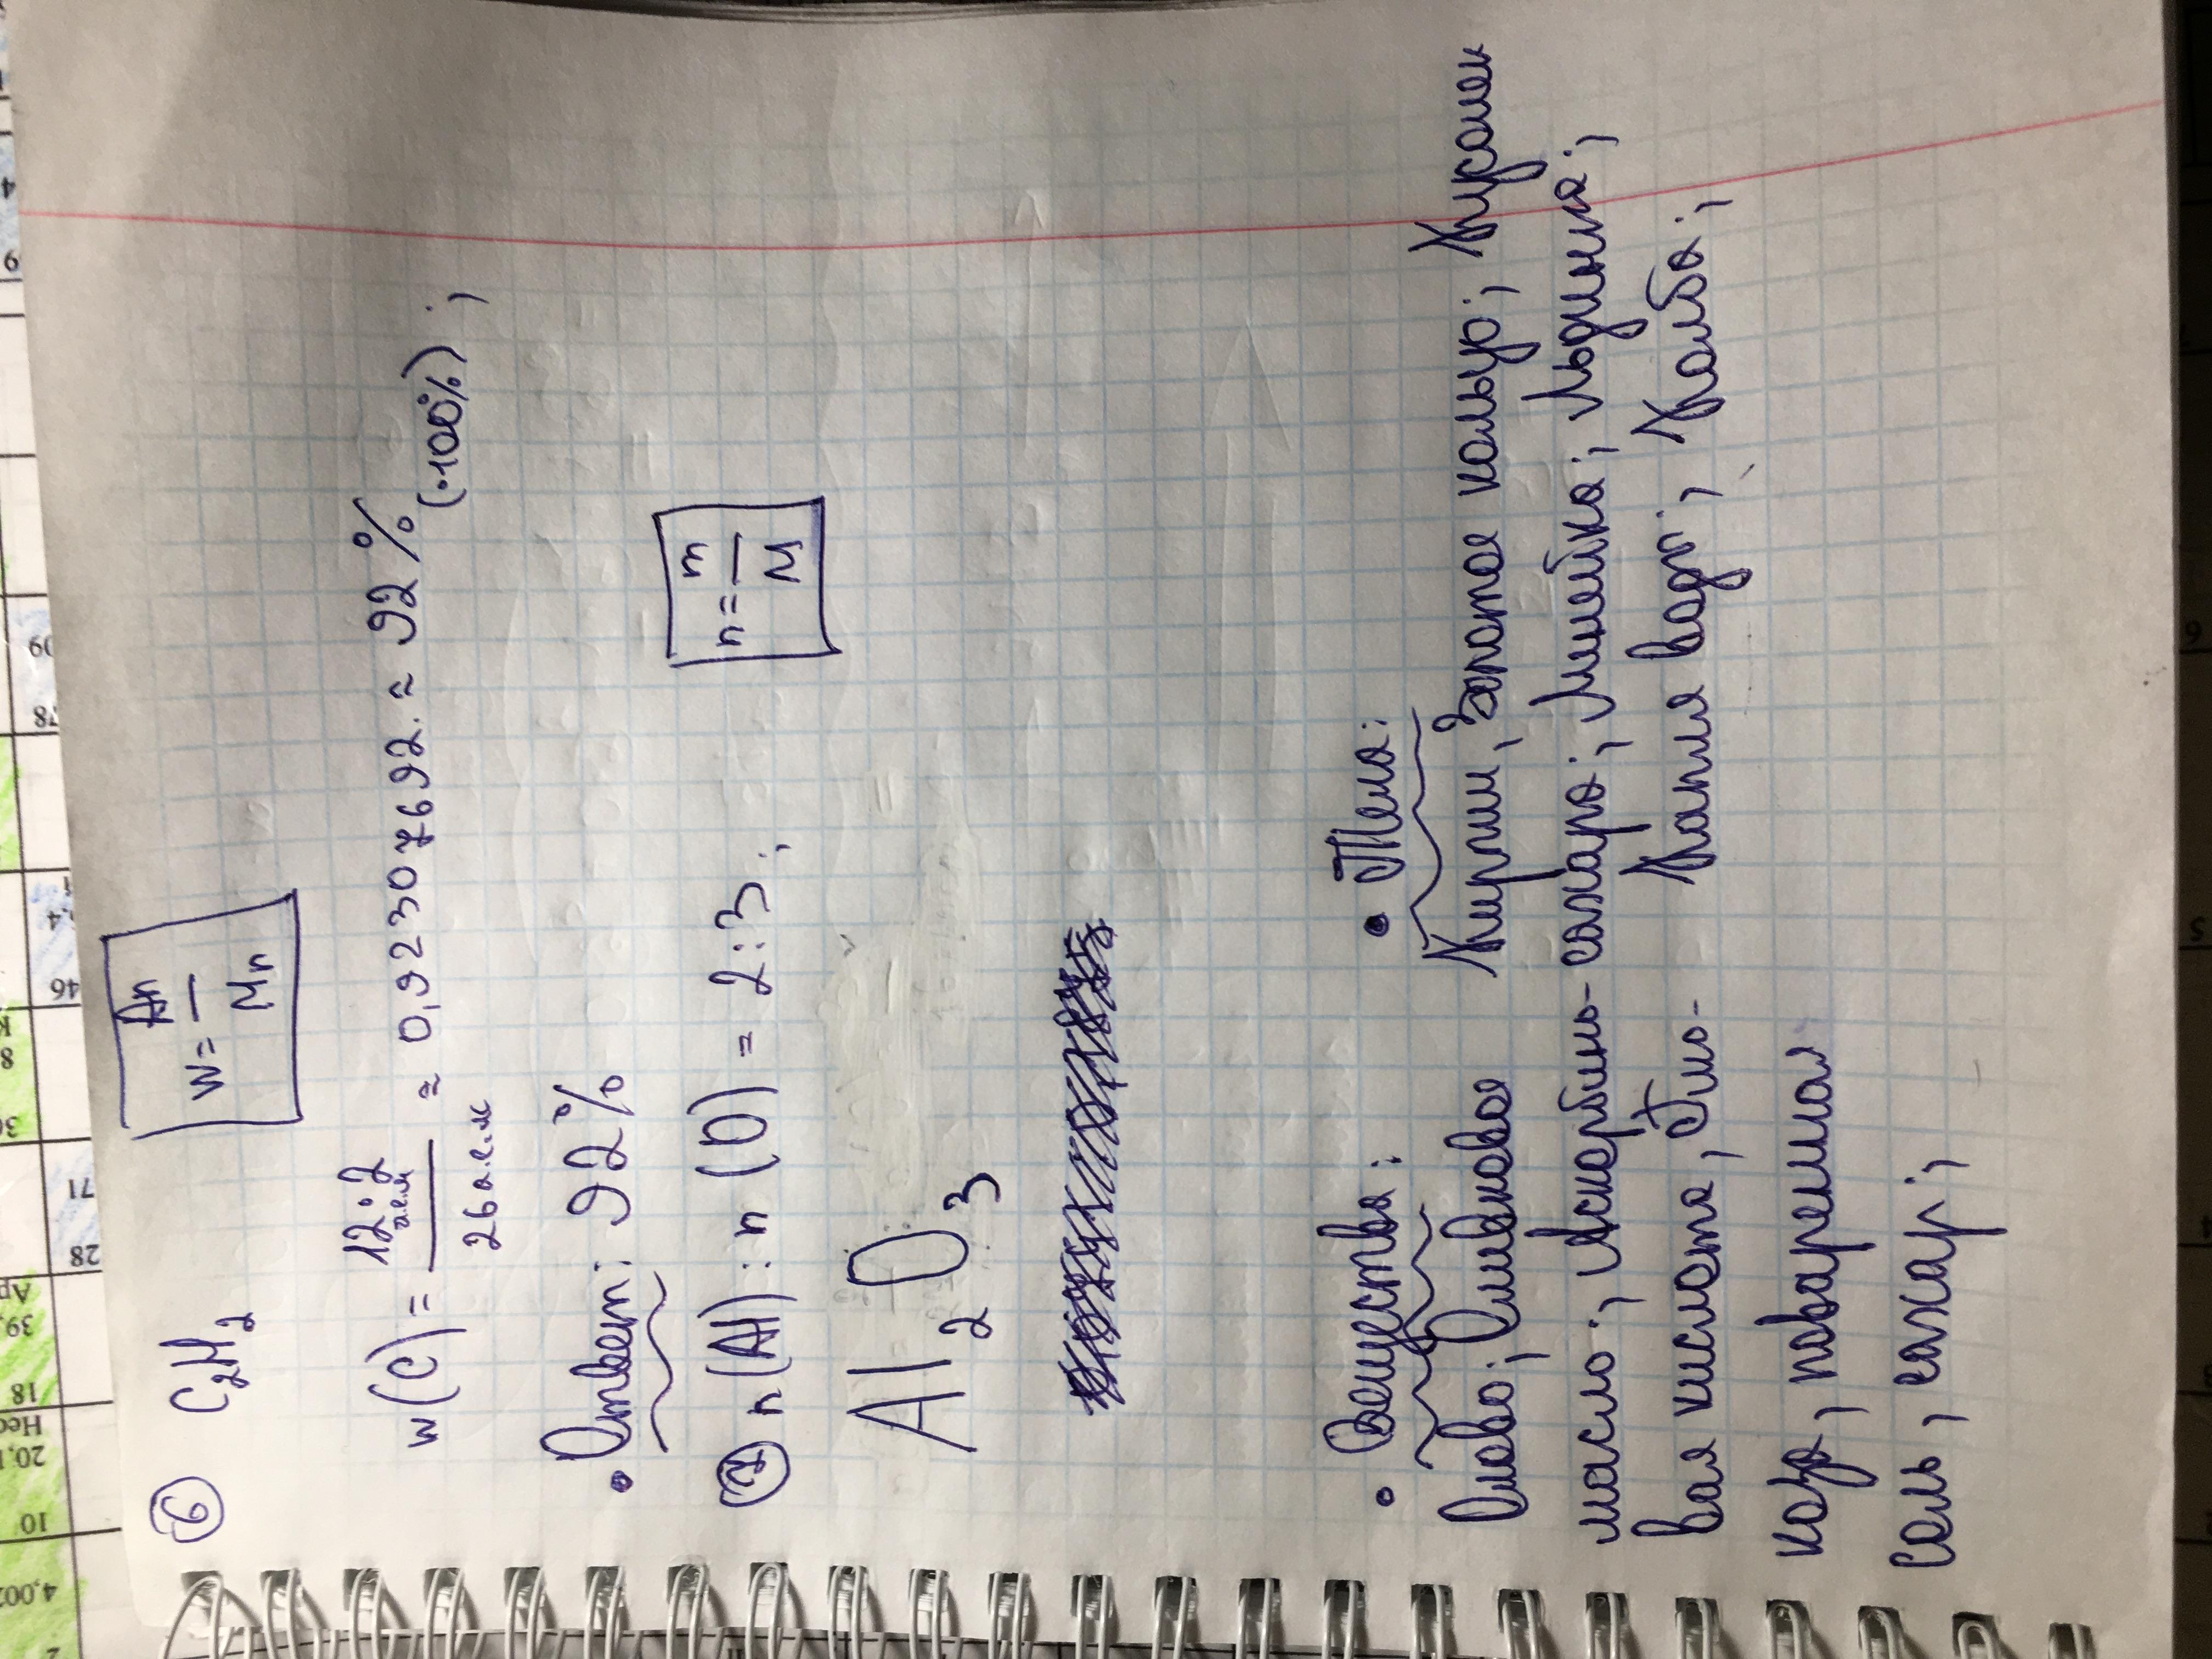 6 C₂H₂
w = Ar/Mr
w(C) = 12·2 а.е.м / 26 а.е.м ≈ 0,92307692. ≈ 92% (·100%);
• Ответ: 92%
n(Al) : n(O) = 2:3;
n = m/M
Al₂O₃
• Вещества:
Олово; Оливковое
масло; Аскорбино-
вая кислота, Глю-
коза, поваренная
соль, сахар;
• Тела:
Кирпич, Золотое кольцо; Кусочек
сахара; Линейка; Льдинка;
Капля воды; Колба;